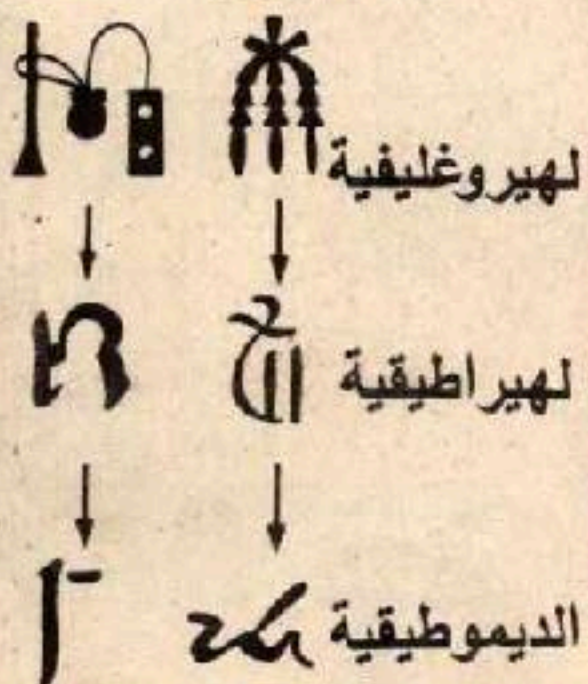 لهيروغليفية
لهيراطيقية
الديموطيقية